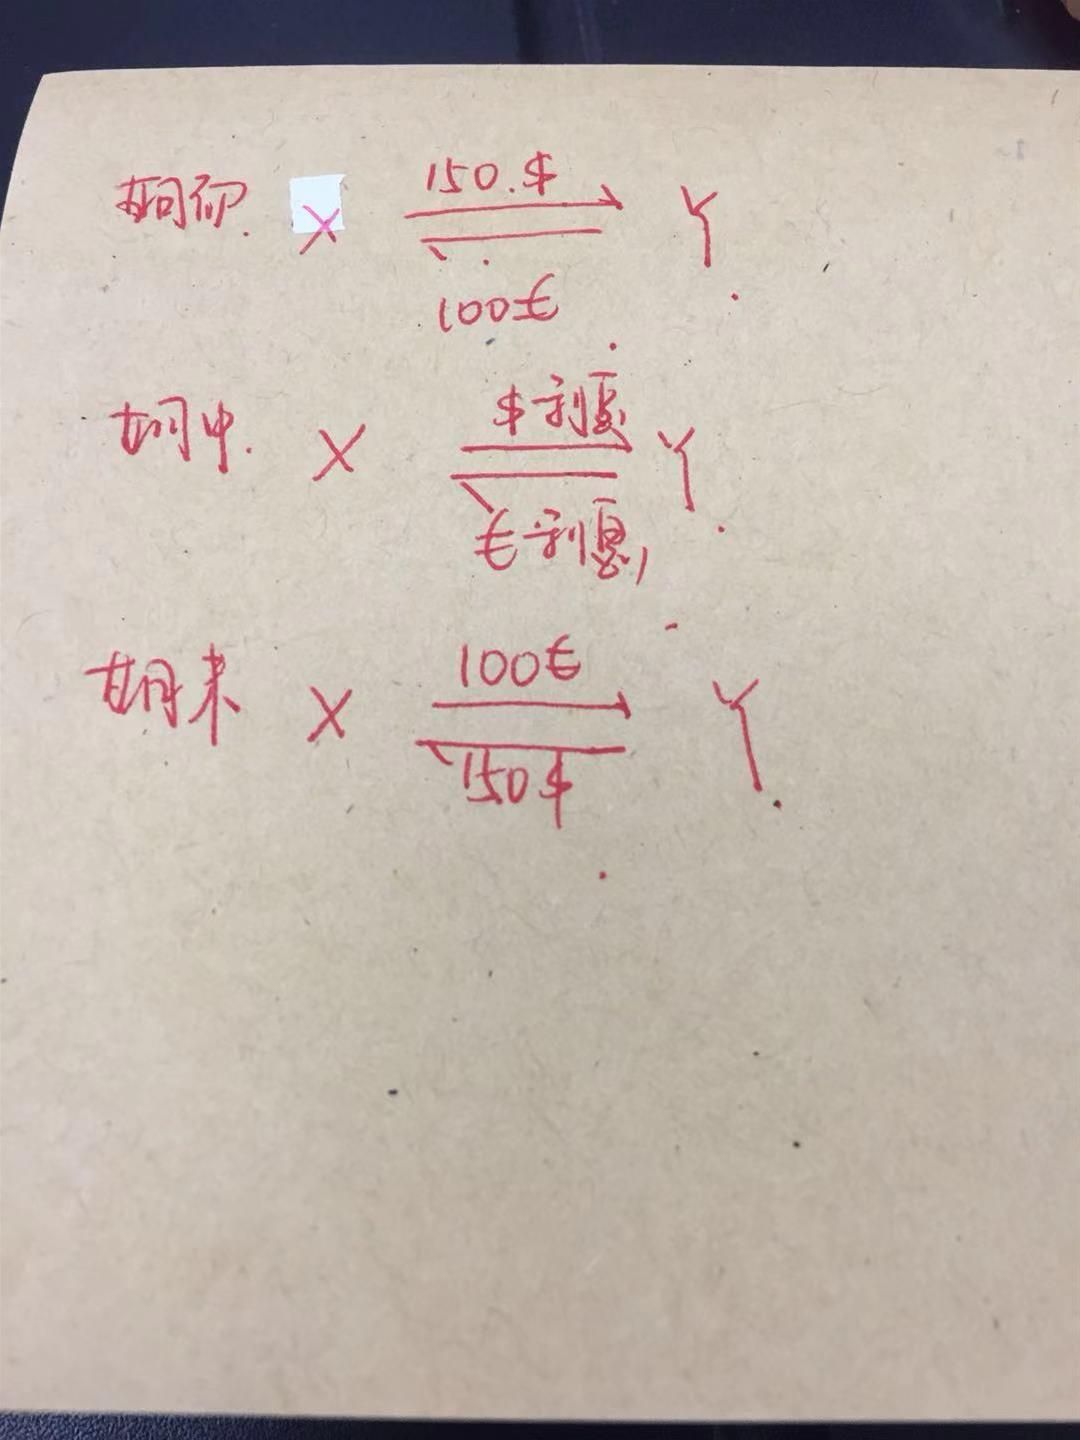 期初. X 150.$ Y
100€
期中. X $利息 Y
€利息,
期末 X 100€ Y
150$